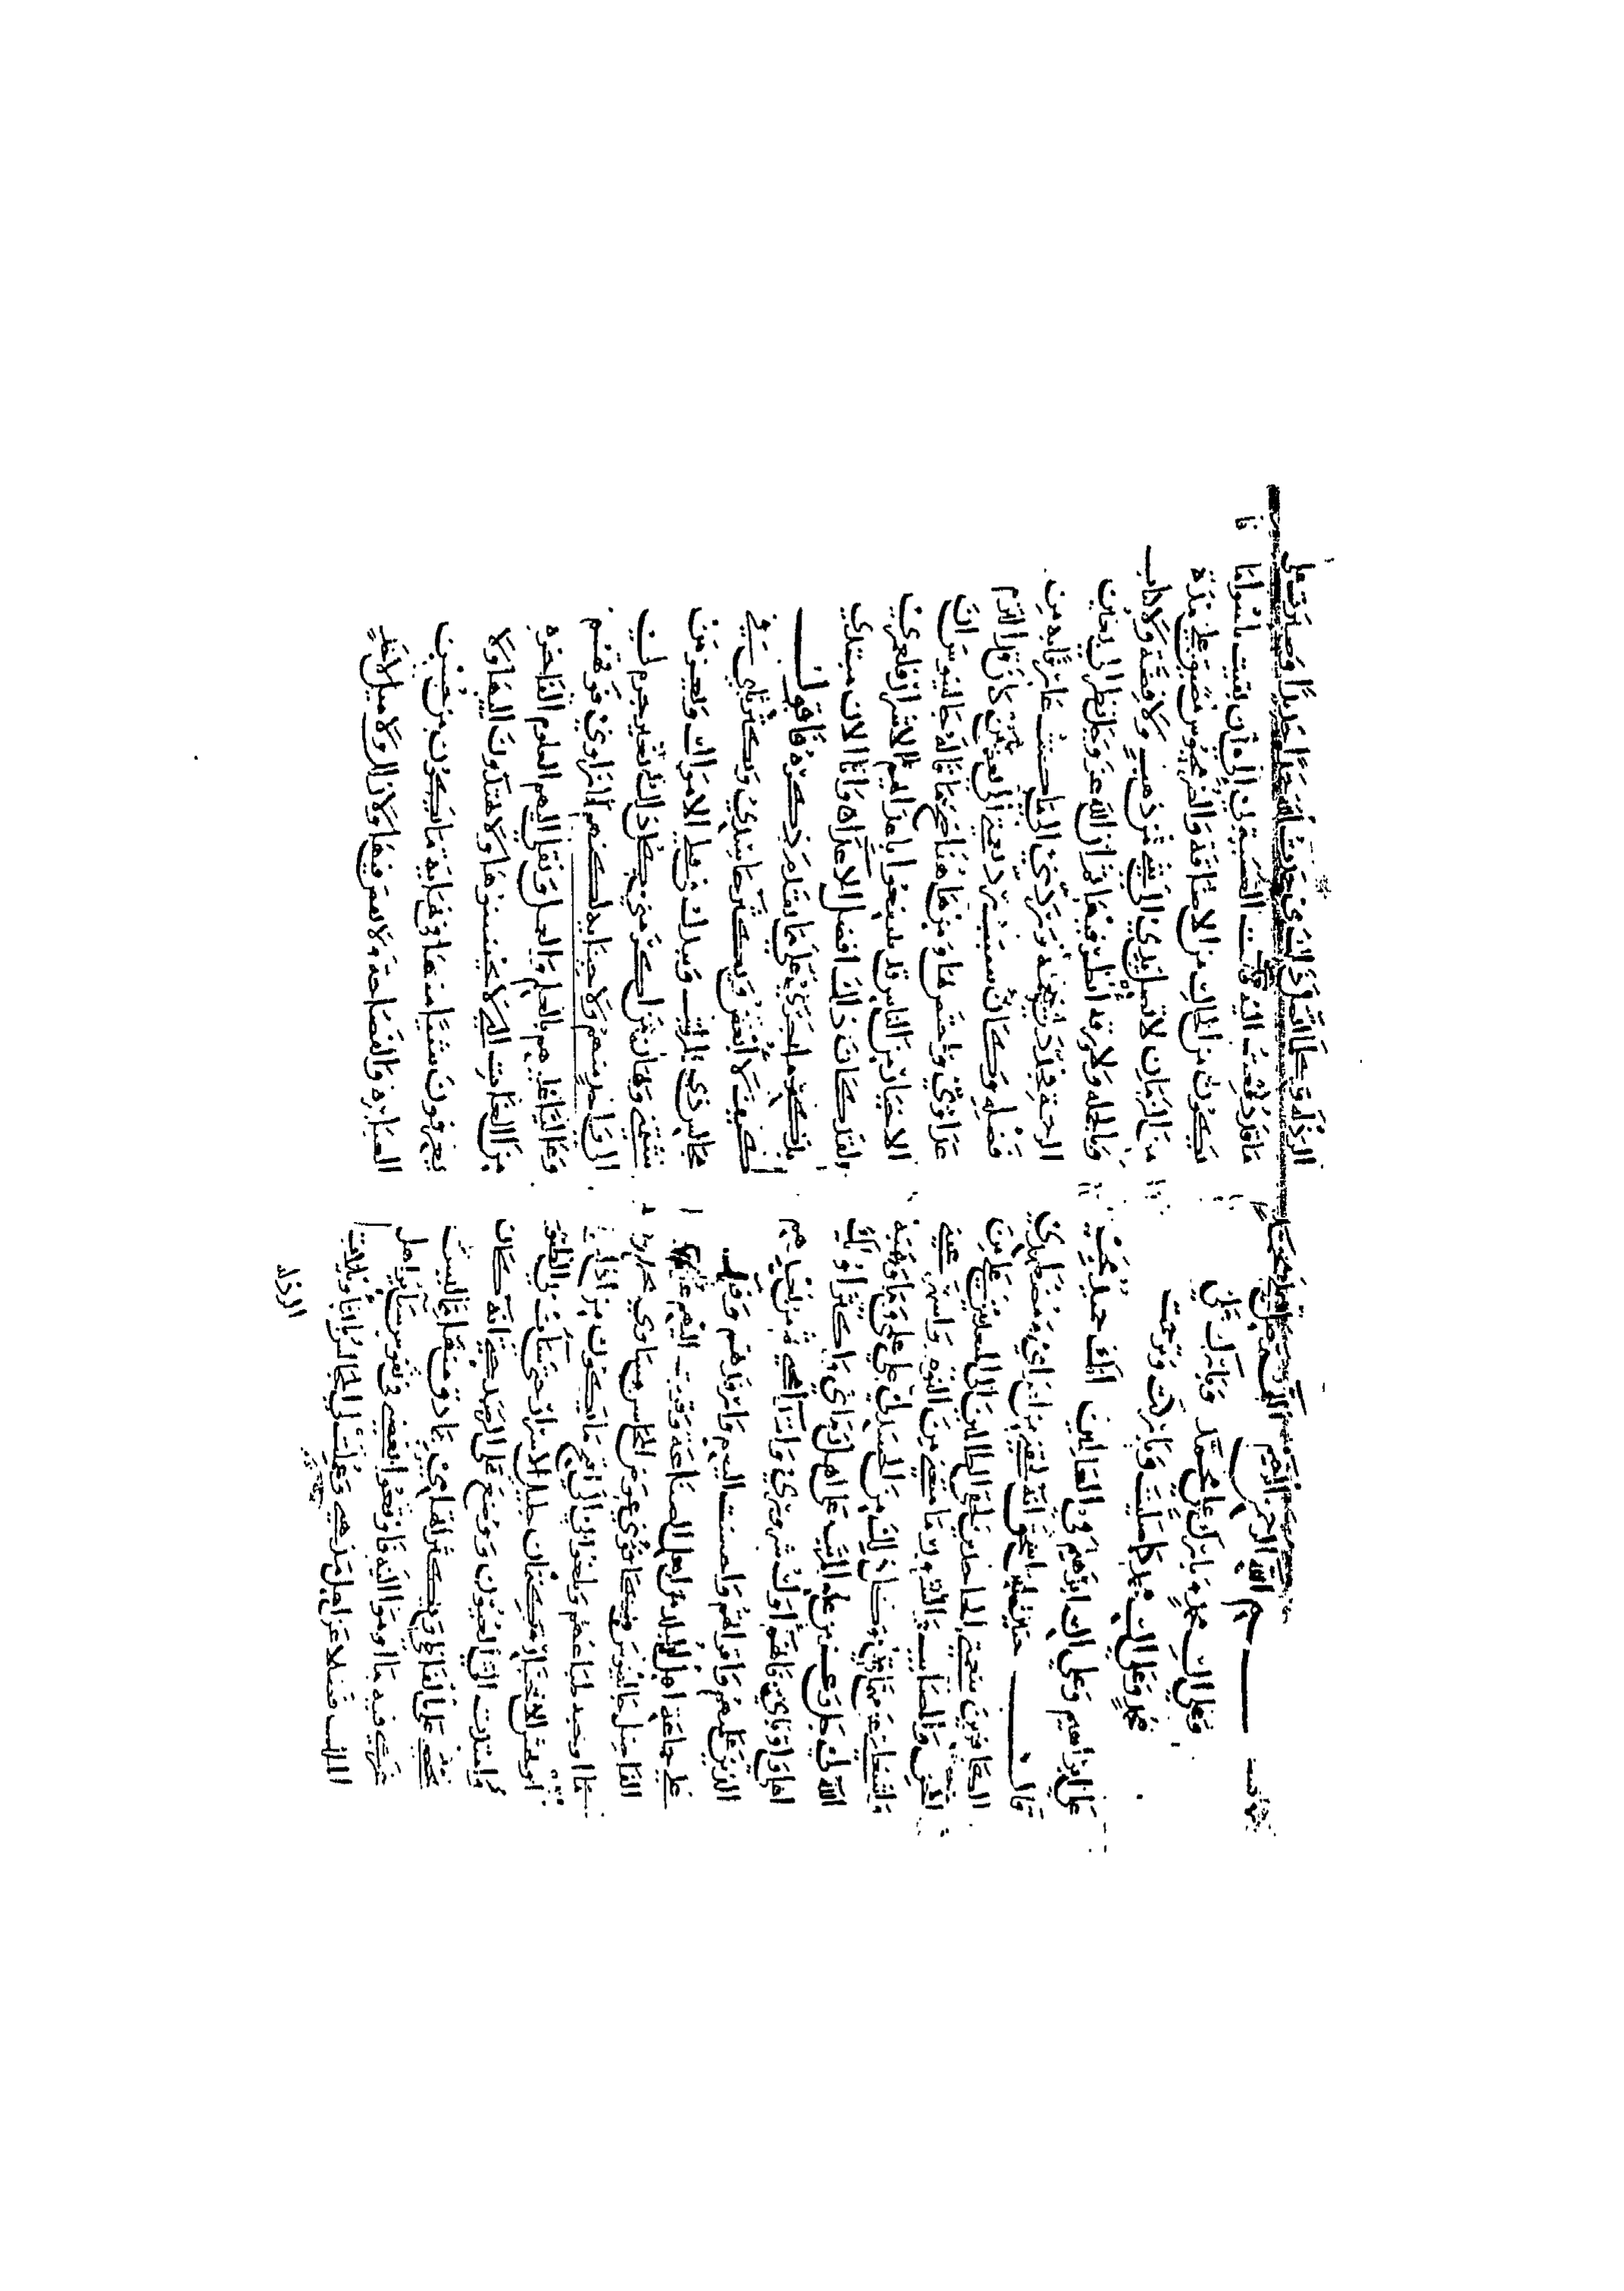 بسم الله الرحمن الرحيم
وعلى ال محمد وبارك على محمد وبارك على
محمد وعلى ال محمد كما صليت وباركت وترحمت
على ابراهيم وعلى ال ابراهيم في العالمين انك حميد مجيد
قال حنين بن اسحق انه لحقني من اعدائي ومضطهدي
الكافرين بنعمتي الجاحدين لحقي الظالمين لي المتعدين علي من
المحن والمصائب والشرور ما منعني من النوم واسهر عيني
واشغلني عن مهماتي وكل ذلك من الحسد لي على علمي وما وهبه
الله لي جل وعز من علو المرتبة على اهل زماني واكثر اوليك
اهلي واقرباي فانهم اول شروري وابتداء محني ثم من بعدهم
الذين علمتهم واقراتهم واحسنت اليهم وارفدتهم
على جماعة اهل البلد من اهل الصناعة وقربت اليهم علوم
الفاضل جالينوس فكافوني عوض المحاسن مساوي
بما اوجبته طباعهم وبلغوا بي الى اقبح ما يكون من اذاعة
اوحش الاخبار وكتمان جميل الاسرار حتى ساءت بي الظنون
وامتدت الي العيون ووضع علي الرصد حتى انه كان
يحصى علي الفاظي ويكثر اتهامي بما دق منها مما ليس
غرضي فيه ما اوموا اليه فاوقعوا بغضتي في نفوس ساير اهل
الملل فضلا عن اهل مذهبي وعملت لي المجالس بالتاويلات
الرذلة
الرذلة وكلما اتصل ذلك بي حمدت الله حمدا جديدا وصبرت على
ما قد دفعت اليه فالت القصة بي الى ان بقيت باسوا ما
يكون من الحال من الاضاقة والضر محبوس مضيق علي مدة
من الزمان لا تصل يدي الى شي من ذهب ولا فضة ولا كتاب
وبالجملة ولا ورقة انظر فيها ثم ان الله عز وجل نظر الي بعين
الرحمة فجدد لي نعمه وردني الى ما كنت عارفا به من
فضله وكان سبب رد نعمتي الي بعض من كان قد التزم
عداوتي واختص بها ومن هاهنا صح ما قاله جالينوس ان
الاخيار من الناس قد ينتفعوا باعدائهم الاشرار فلعمري
لقد كان ذلك افضل الاعداء وانا الان مبتدي
بذكر ما جرى علي مما تقدم ذكره فاقول
كيف لا ابغض ويكثر حاسدي ويكثر ثلبي في
مجالس ذوي المراتب ويبذل في قتلي الاموال ويعز من
شتمني ويهان من اكرمني كل ذلك بغير جرم لي
الى واحد منهم ولا جناية لكنهم لما راوني فوقهم
وعاليا عليهم بالعلم والعمل ونقلي اليهم العلوم الفاخرة
من اللغات التي لا يحسنونها ولا يهتدون اليها ولا
يعرفون شيئا منها في نهاية ما يكون من حسن
العبارة والفصاحة ولا نقص فيها ولا زلل ولا ميل لاحد